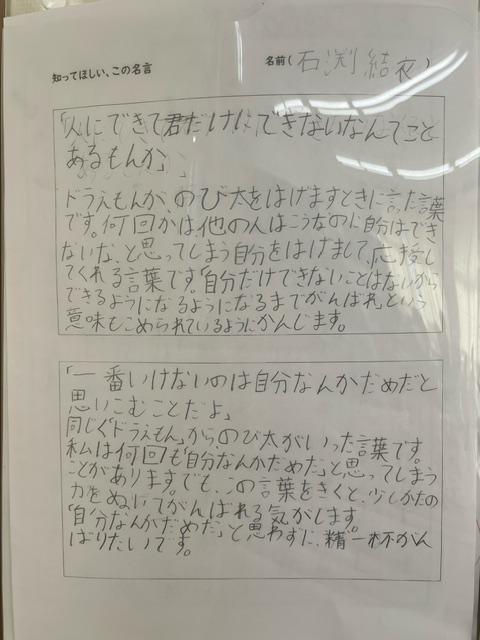 知ってほしい、この名言
名前(石渕 結衣)
「人にできて君だけにできないなんてこと
あるもんか」
ドラえもんが、のび太をはげますときに言った言葉
です。何回かは他の人はこうなのに自分はでき
ないな、と思ってしまう自分をはげまして、応援し
てくれる言葉です。「自分だけできないことはないから
できるようになるようになるまでがんばれ」という
意味もこめられているようにかんじます。
「一番いけないのは自分なんかだめだと
思いこむことだよ」
同じく「ドラえもん」から、のび太がいった言葉です。
私は何回も「自分なんかだめだ」と思ってしまう
ことがあります。でも、この言葉をきくと、少しかたの
力をぬいてがんばれる気がします。
「自分なんかだめだ」と思わずに、精一杯がん
ばりたいです。